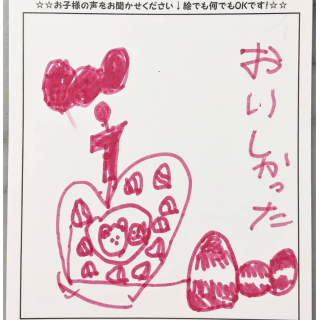 ☆☆お子様の声をお聞かせください↓絵でも何でもOKです！☆☆
おいしかった
1